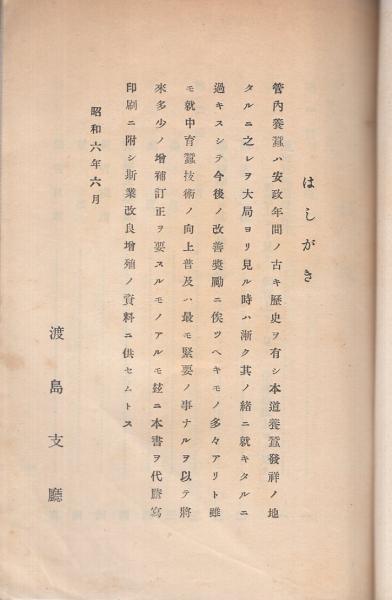 はしがき
管内養蠶ハ安政年間ノ古キ歷史ヲ有シ本道養蠶發祥ノ地
タルニ之レヲ大局ヨリ見ル時ハ漸ク其ノ緖ニ就キタルニ
過キスシテ今後ノ改善奬勵ニ俟ツヘキモノ多々アリト雖
モ就中育蠶技術ノ向上普及ハ最モ緊要ノ事ナルヲ以テ將
來多少ノ增補訂正ヲ要スルモノアルモ玆ニ本書ヲ代謄寫
印刷ニ附シ斯業改良增殖ノ資料ニ供セムトス
昭和六年六月
渡島支廳